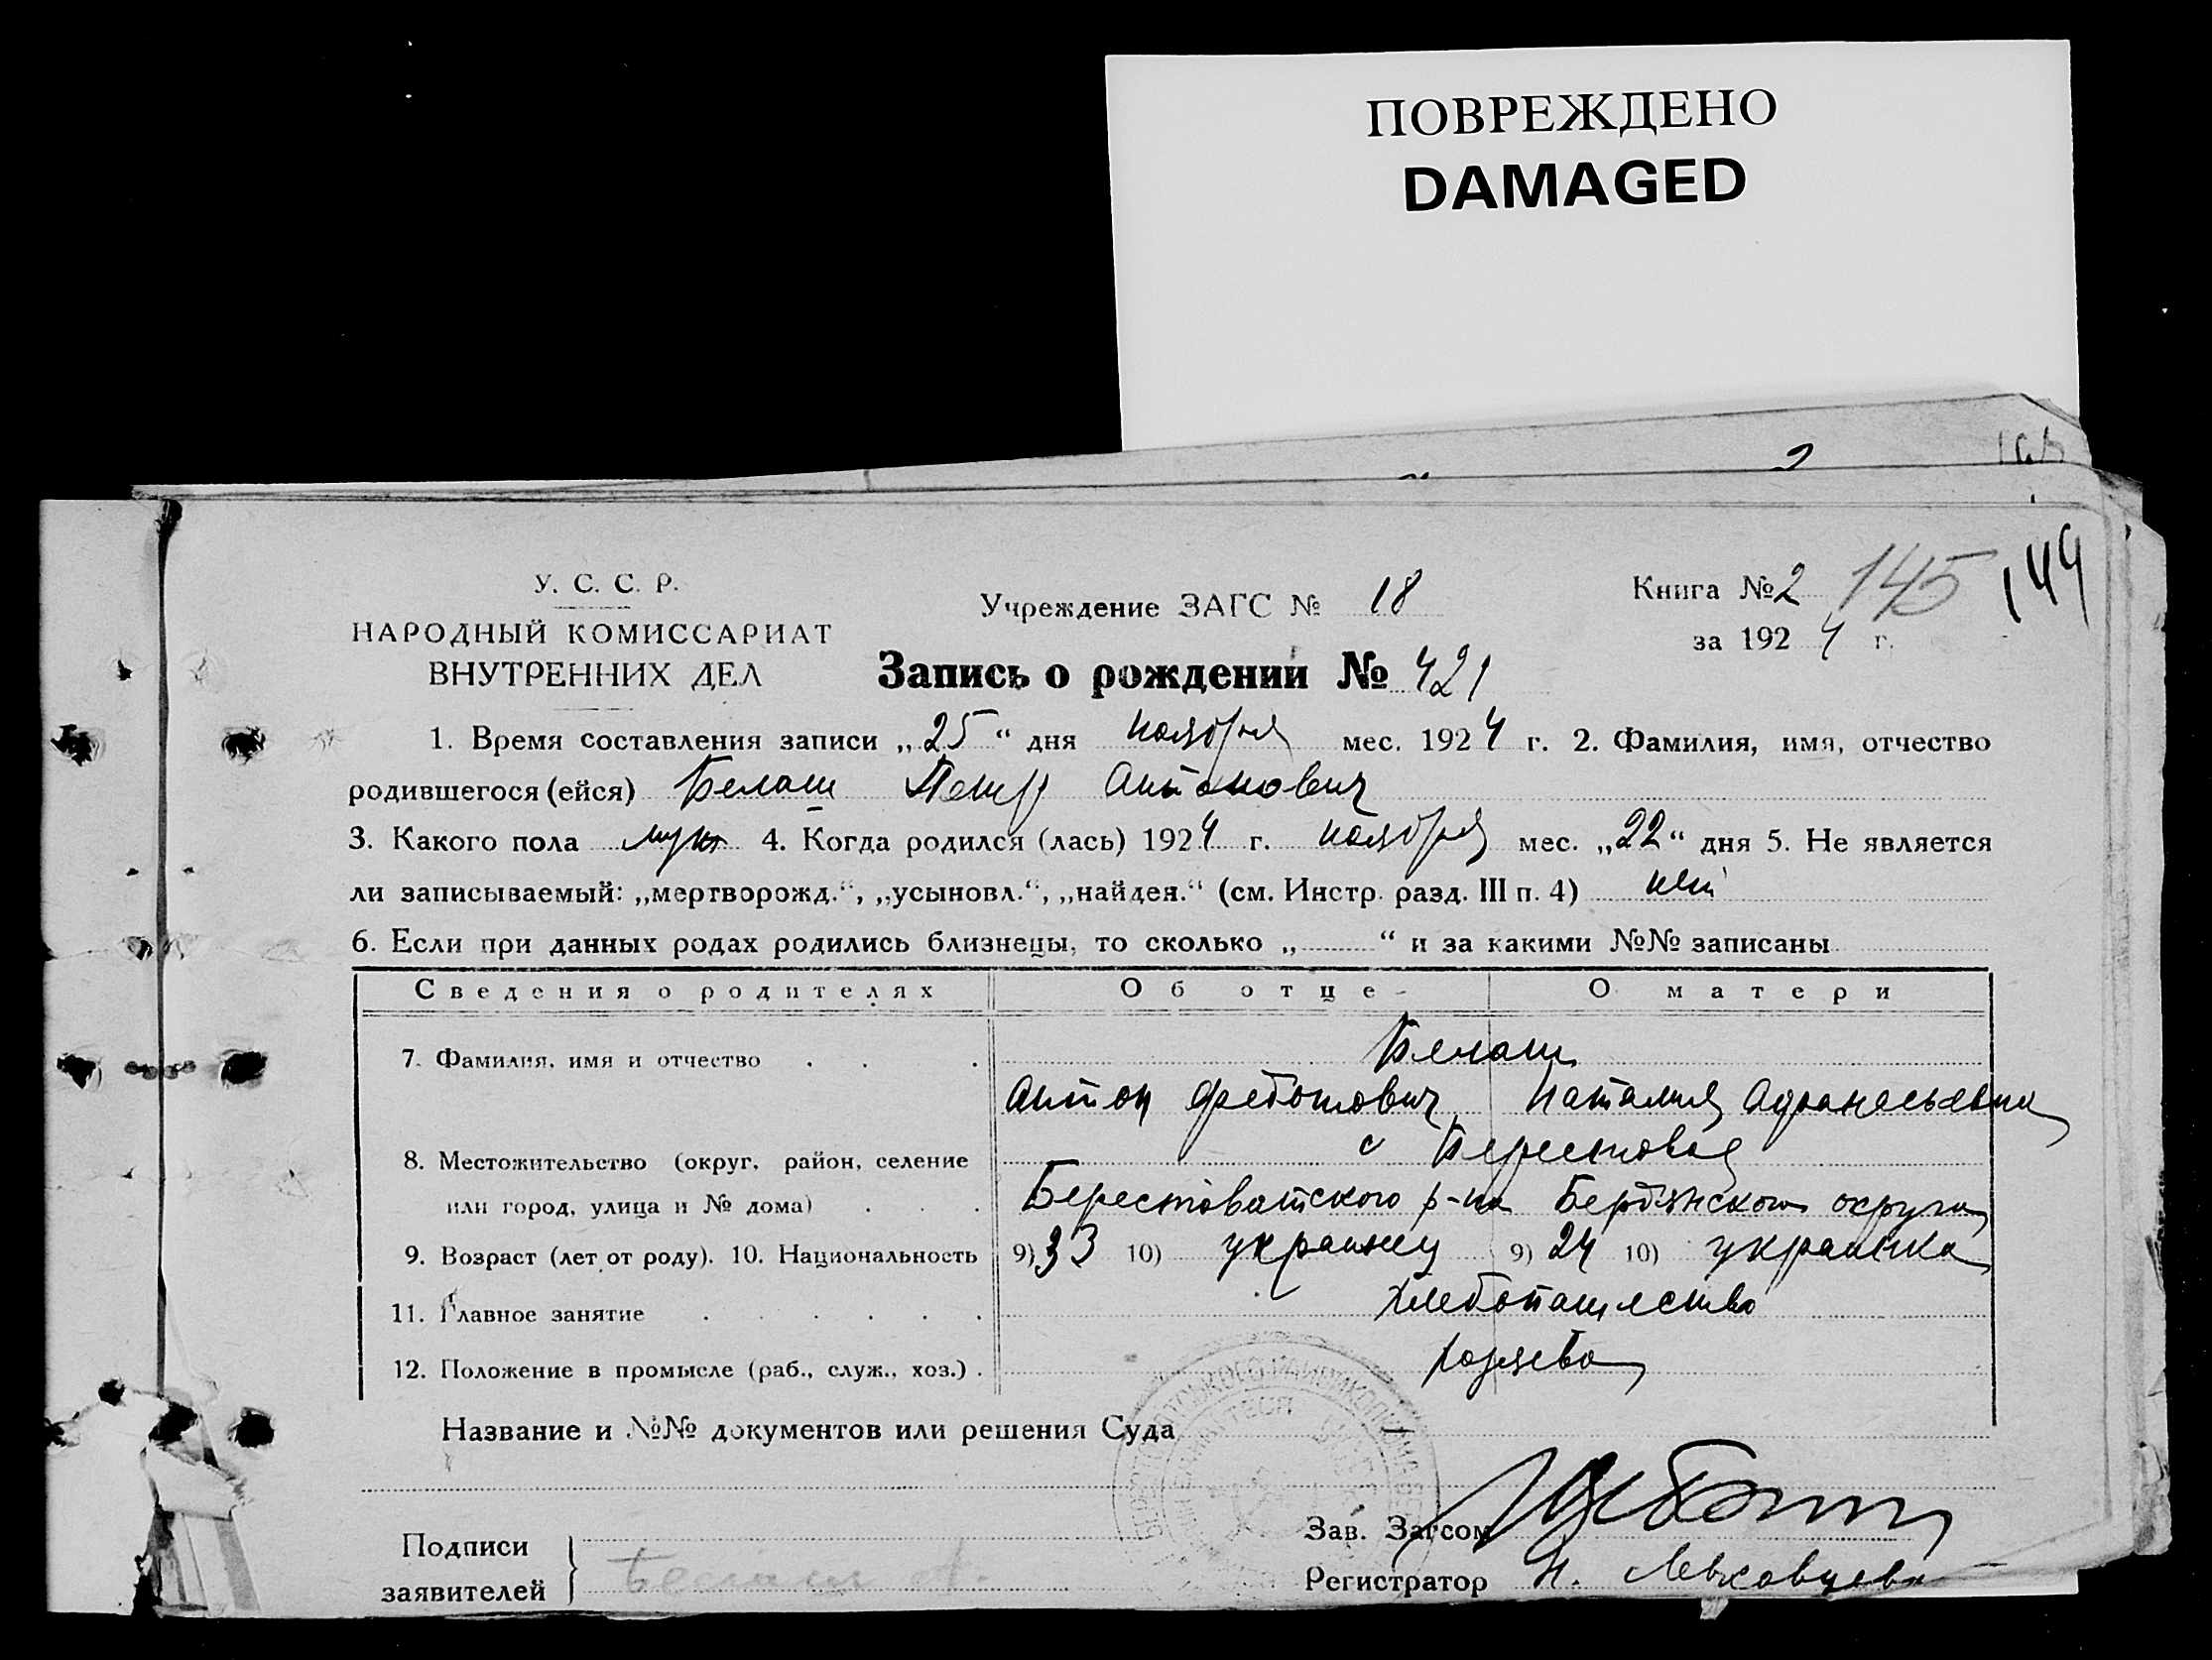 ПОВРЕЖДЕНО
DAMAGED
У. С. С. Р.
НАРОДНЫЙ КОМИССАРИАТ
ВНУТРЕННИХ ДЕЛ
Учреждение ЗАГС № 18
Книга № 2 145 144
за 1924 г.
Запись о рождении № 421
1. Время составления записи „25“ дня ноября мес. 1924 г. 2. Фамилия, имя, отчество
родившегося (ейся) Белаш Петр Антонович
3. Какого пола муж 4. Когда родился (лась) 1924 г. ноября мес. „22“ дня 5. Не является
ли записываемый: „мертворожд.“, „усыновл.“, „найден.“ (см. Инстр. разд. III п. 4) нет
6. Если при данных родах родились близнецы, то сколько „ “ и за какими №№ записаны
Сведения о родителях Об отце О матери
7. Фамилия, имя и отчество Белаш
Антон Федотович Наталия Афанасьевна
8. Местожительство (округ, район, селение с Берестовая
или город, улица и № дома) Берестоватского р-на Бердянского округа
9. Возраст (лет от роду). 10. Национальность 9) 33 10) украинец 9) 24 10) украинка
11. Главное занятие хлебопашество
12. Положение в промысле (раб., служ., хоз.) хозяева
Название и №№ документов или решения Суда —
Подписи
заявителей Белаш А.
Зав. Загсом
Регистратор Н.